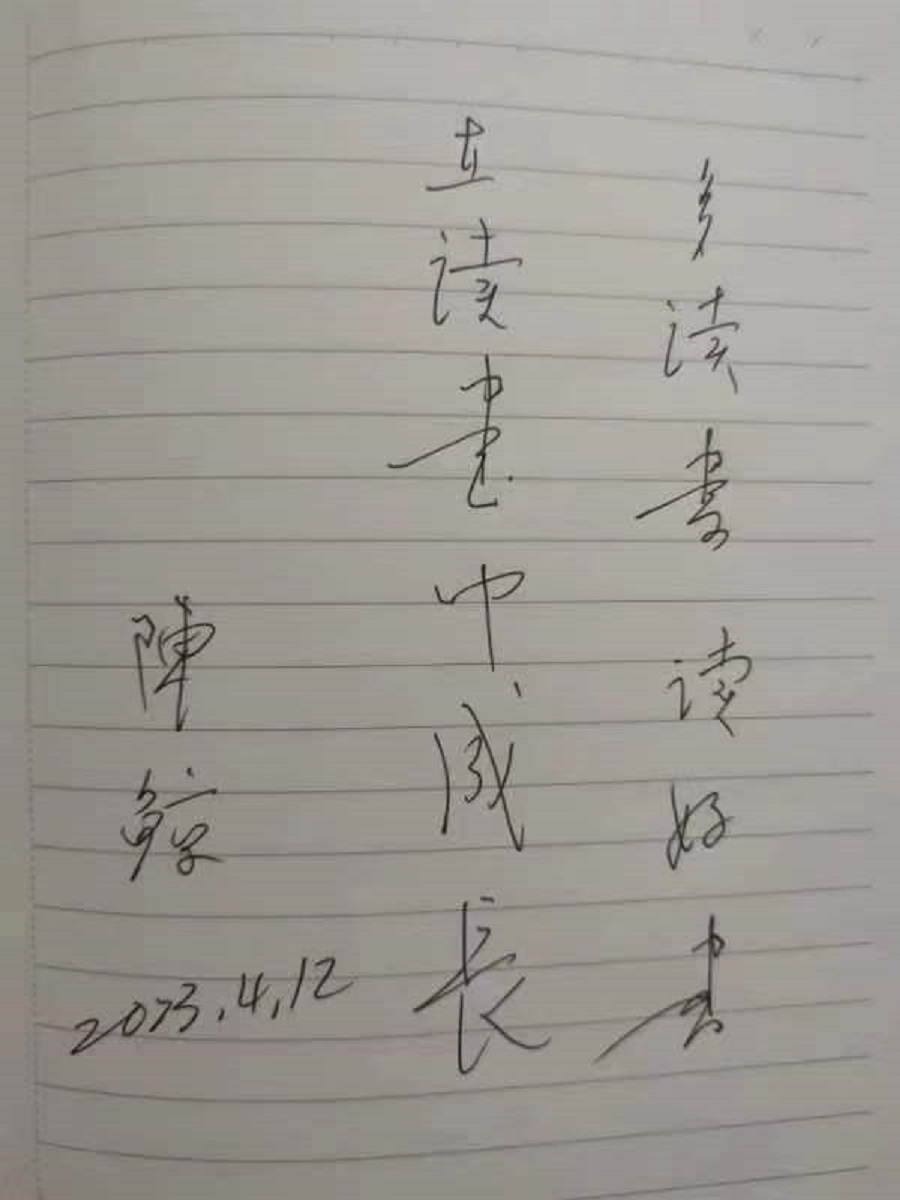 多读书 读好书
在读书中成长
陳鲸
2023.4.12